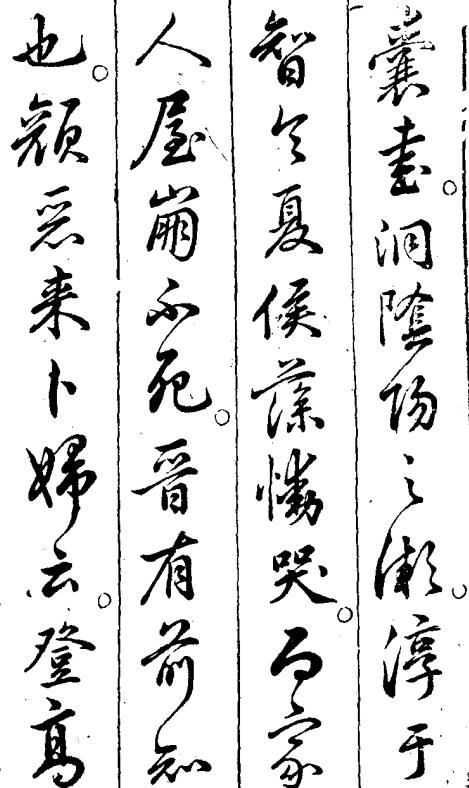 囊書。洞陰陽之微。淳于
智令夏侯藻慟哭。而家
人屋崩不死。晉有前知
也。顏惡来卜婦云。登高